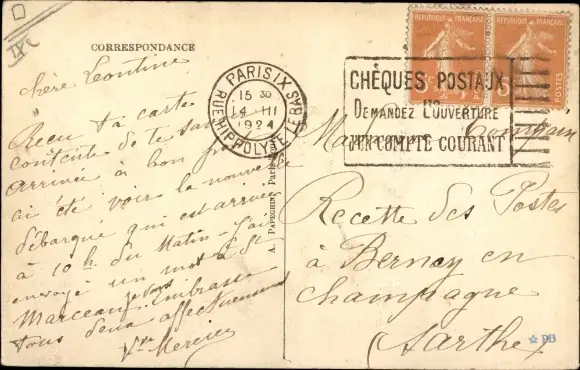 IXe
CORRESPONDANCE
chère Leontine
Reçu ta carte
contente de te savoir
arrivée à bon port
ai été voir la nouvelle
débarqué qui est arrivée
à 10 h. du Matin - j'ai
envoyé un mot à St
Marceau je vous embrasse
tous deux affectueusement
Vve Mercier
A. PAPEGHIN Paris
PARIS IX
15 30
14 - III
1924
RUE HIPPOLYTE LEBAS
REPUBLIQUE FRANÇAISE
REPUBLIQUE FRANÇAISE
POSTES
CHÈQUES POSTAUX
DEMANDEZ L'OUVERTURE
D'UN COMPTE COURANT
Recette des Postes
à Bernay en
champagne
Sarthe
PB